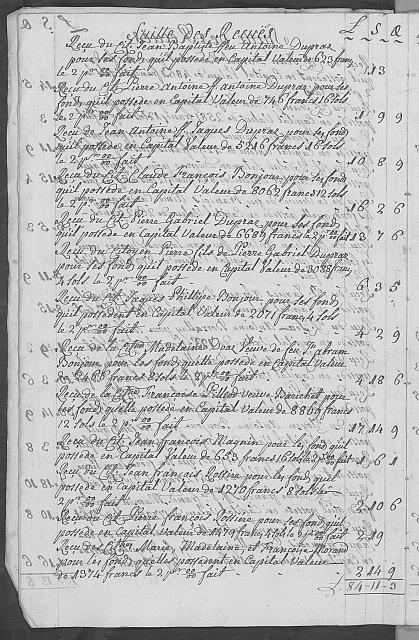 L Suitte des Recües L S D
Recu du Cit Jean Baptiste feu Antoine Dupraz
pour ses fonds qu'il possède en Capital Valeur de 623 francs
le 2 pr 00/00 fait 1 13
Recu du Cit Pierre Antoine f. Antoine Dupraz pour ses
fonds qu'il possède en Capital Valeur de 746 francs 16 sols
le 2 pr 00/00 fait 1 9 9
Recu de Jean Antoine f. Jaques Dupraz pour ses fonds
qu'il possède en Capital Valeur de 5216 francs 16 sols
le 2 pr 00/00 fait 10 8 9
Recu du Cit Claude François Bonjour pour ses fonds
qu'il possède en Capital Valeur de 8063 francs 12 sols
le 2 pr 00/00 fait 16 2 6
Recu du Cit Pierre Gabriel Dupraz pour ses fonds
qu'il possède en Capital Valeur de 6689 francs le 2 pr 00/00 fait 13 7 6
Recu du Citoyen Pierre fils de Pierre Gabriel Dupraz
pour ses fonds qu'il possède en Capital Valeur de 3088 francs
4 sols le 2 pr 00/00 fait 6 3 5
Recu du Cit Jaques Philippe Bonjour pour ses fonds
qu'il possèdent en Capital Valeur de 2071 francs 4 sols
le 2 pr 00/00 fait 4 2 9
Recu de la Madelaine Veuve de feu
Bonjour pour les fonds qu'elle possède en Capital Valeur
de 2466 francs 8 sols le 2 pr 00/00 fait 4 18 6
Recu de la Françoise veuve pour
ses fonds qu'elle possède en Capital Valeur de 8869 francs
12 sols le 2 pr 00/00 fait 17 14 9
Recu du Cit Jean françois Magnin pour les fonds qu'il
possède en Capital Valeur de 653 francs 16 sols le 2 pr 00/00 fait 1 6 1
Recu du Cit Jean françois Rossire pour les fonds qu'il
possède en Capital Valeur de 1270 francs 8 sols le
2 pr 00/00 fait 2 10 6
Recu du Cit Pierre François Rossire pour ses fonds qu'il
possède en Capital Valeur de 1479 francs 4 sols le 2 pr 00/00 fait 2 19
Recu des Marie Madelaine et Françoise Morand
pour les fonds qu'elles possèdent en Capital Valeur
de 1374 francs le 2 pr 00/00 fait 2 14 9
L 84-11-3